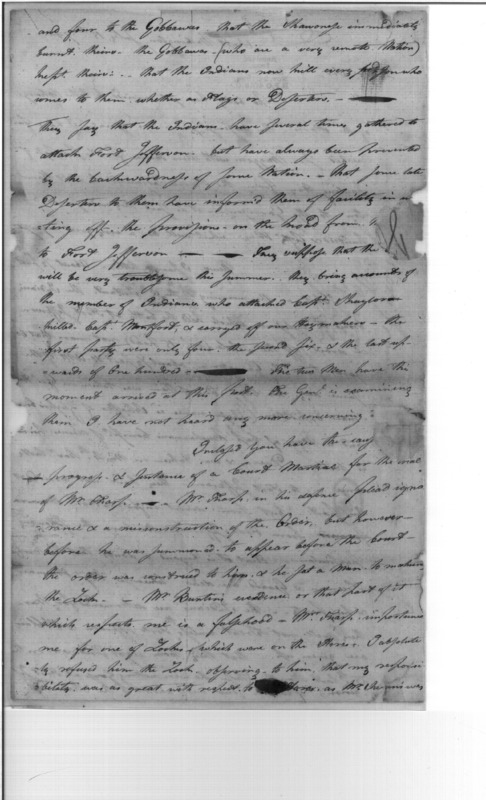 and four to the Gobbewas that the Shawonese immediately
burnt theirs. the Gobbewas (who are a very remote Nation)
kept theirs. - that the Indians now kill every person who
comes to them whether as Flags or Deserters. -
They say that the Indians have several times gathered to
attack Fort Jefferson. but have always been prevented
by the backwardness of some Nation. - that some late
Deserters to them have informed them of facility in
cting off. the provisions on the Road from
to Fort Jefferson - They suppose that the
will be very troublesome this summer. they bring accounts of
the number of Indians who attacked Capt. Shaylor
killed Capt. Montfort & carryed off our Haymakers - the
first party were only four. the second six. & the last up-
-wards of One hundred - The two Men have this
moment arrived at this post. The Genl. is examining
them I have not heard any more concerning.
Inclosed You have the
paragraph & Sentence of a Court Martial for the trial
of Mr. Tharp. - Mr. Tharp. in his defence plead igno
rance & a misconstruction of the Order. but however
before he was summoned to appear before the Court -
the order was construed to him. & he set a Man to making
the Locks. - Mr. Buntin's evidence or that part of it
which respects me is a falsehood - Mr. Tharp. importuned
me for one of Locks, which were on the Stores. I absolute
ly refused him the Lock. observing to him that my responsi
bility was as great with respect to Stores. as Mr. was